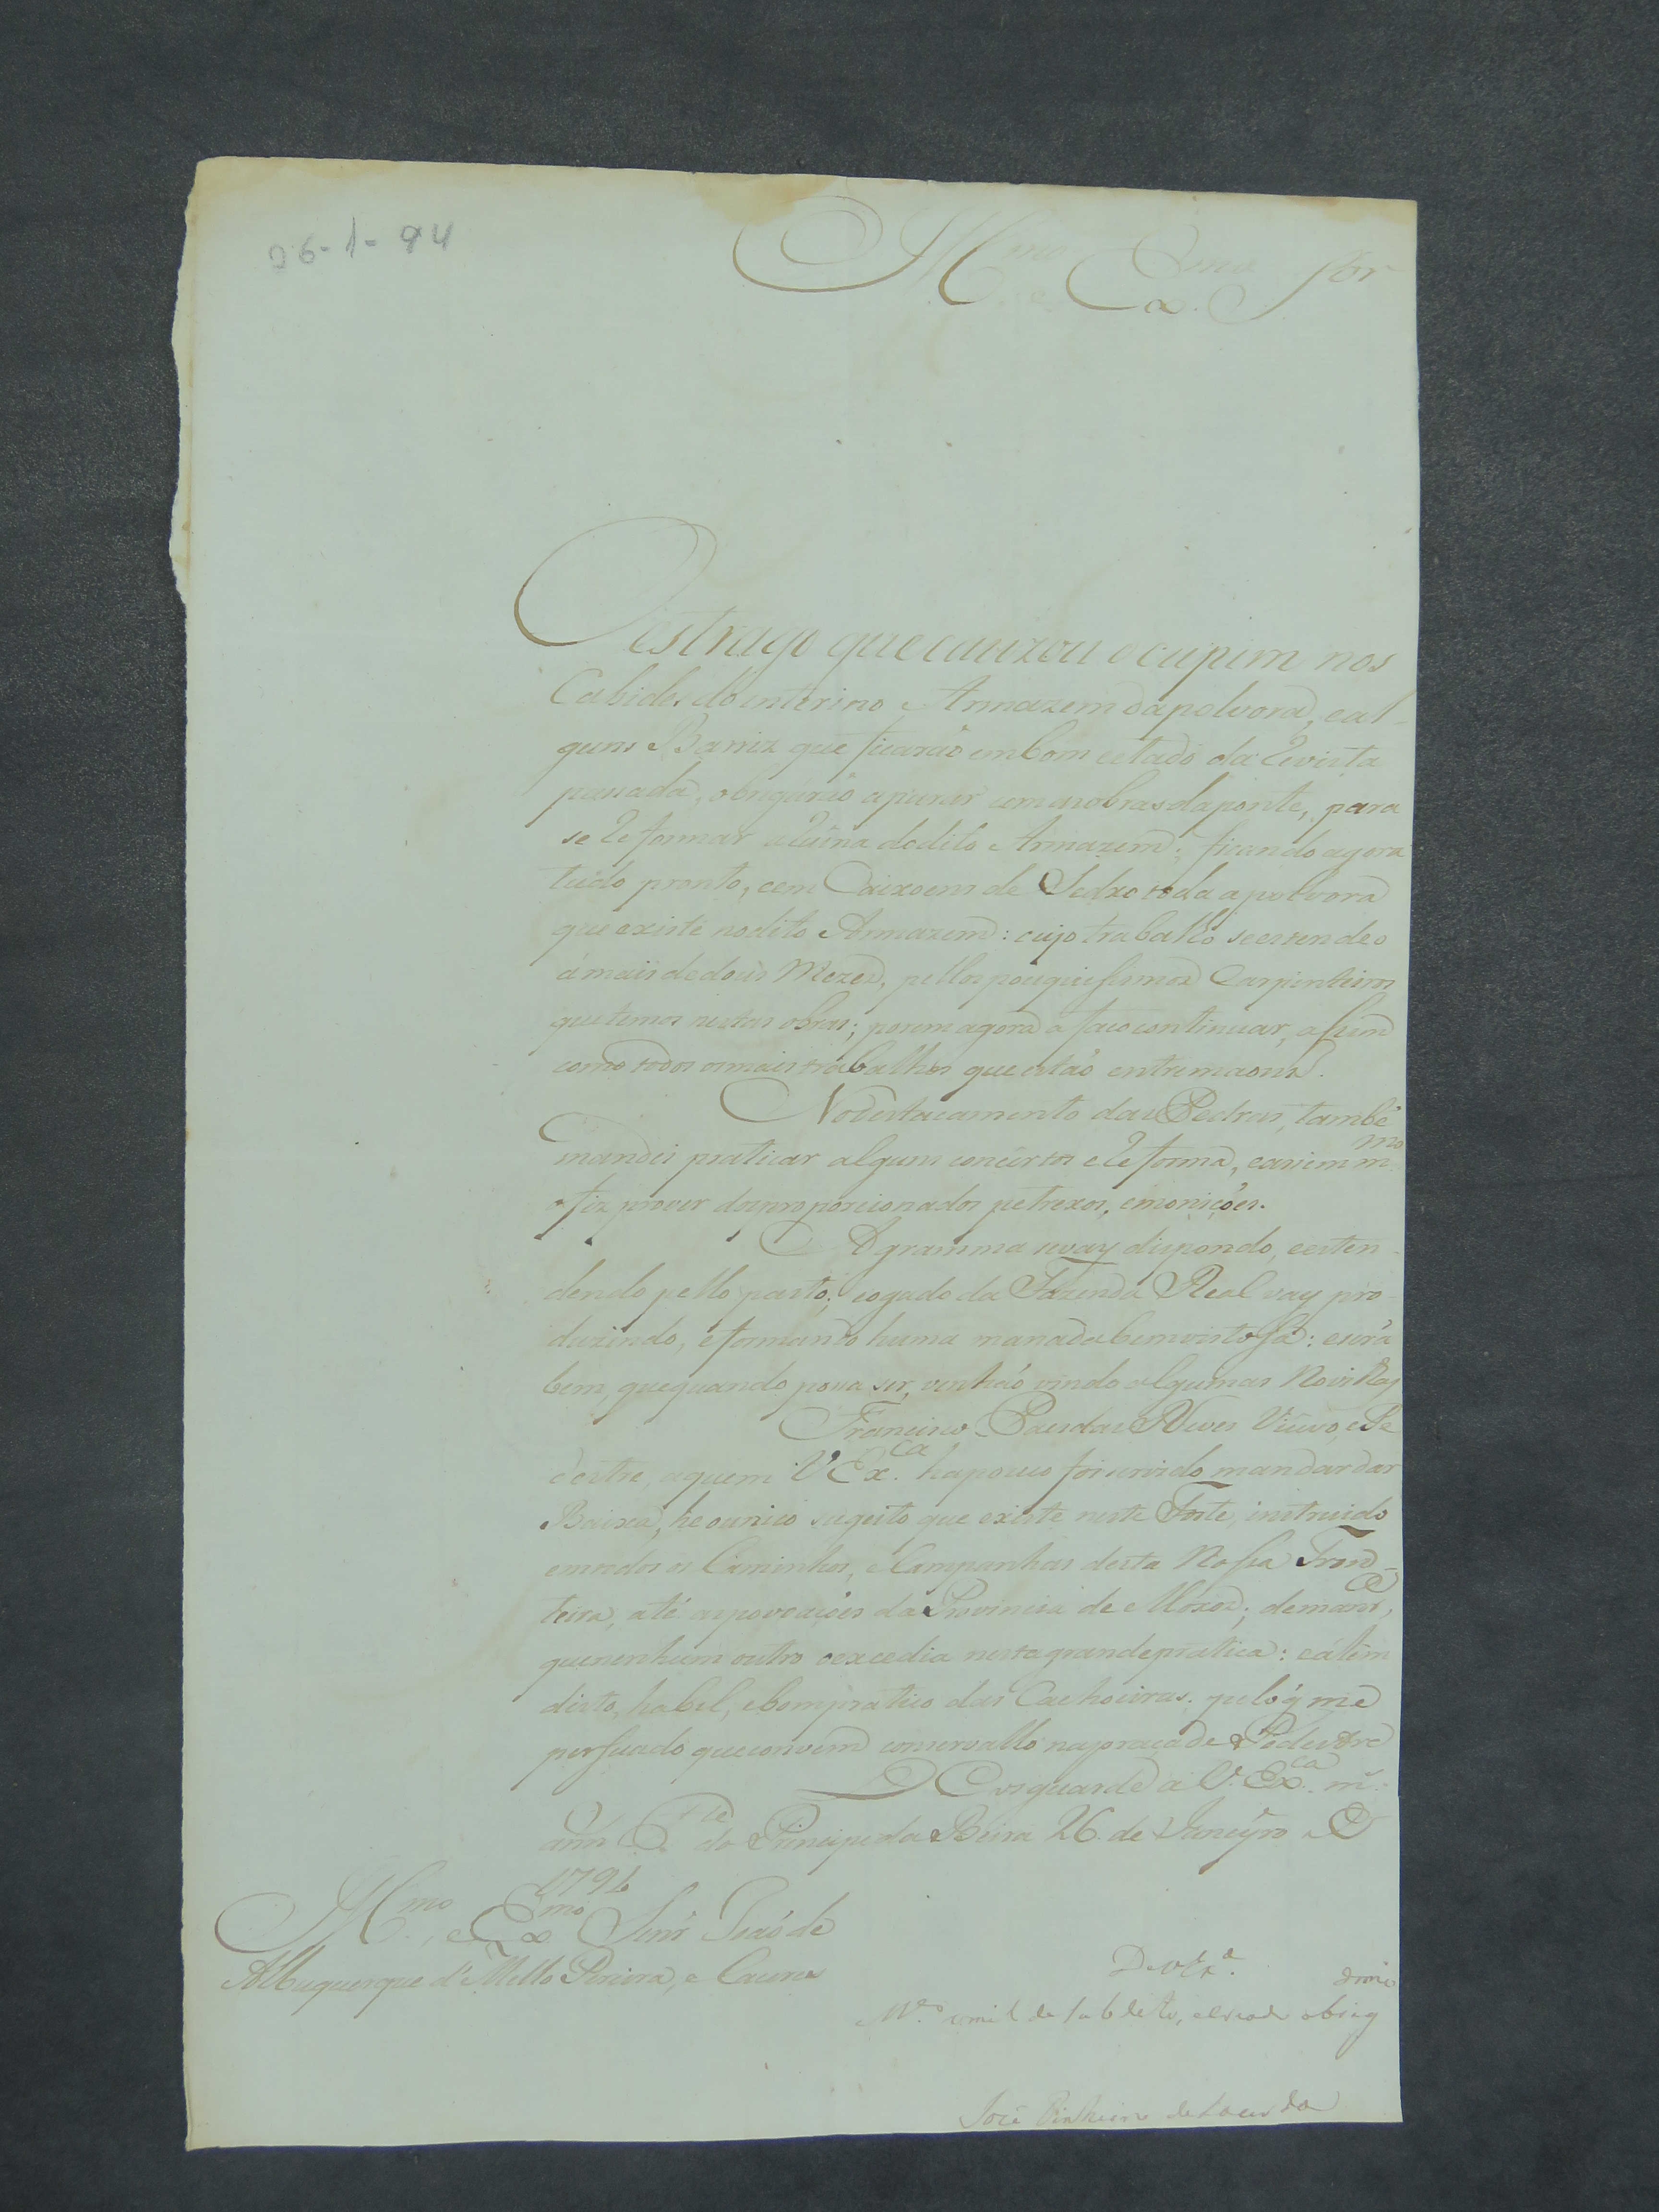 26-1-94
Ill.mo e Ex.mo Sór
O estrago que cauzou o cupim nos
Cabides do interino Armazem da polvora, e al-
guns Barriz que ficarão em bom estado da Revista
passada, obrigárão a parar com as obras da ponte, para
se Reformar a Ruina do dito Armazem; ficando agora
tudo pronto, e em Caixoens de Sedro toda a polvora
que existe no dito Armazem: cujo trabalho se estendeo
á mais de dous Mezes, pellos pouquissimos Carpinteiros
que temos nestas obras; porem agora a faco continuar, assim
como todos os mais trabalhos que estão entre maons.
No destacamento das Pedras, tambẽ
mandei praticar alguns concertos e Reforma, e assim m.mo
o fiz prover dos proporcionados petrexos, e moniçóes.
A gramma se vay dispondo, e esten-
dendo pello pasto; e o gado da Fazenda Real vay pro-
duzindo, e formando huma manada bem vistosa: e será
bem, que quando possa ser, venháo vindo algumas Novilhas
Francisco Paes das Neves Viuvo, e Pe
destre, aquem V Ex.ca ha pouco foi servido mandar dar
Baixa, he o unico sugeito que existe neste Forte, instruido
em todos os Caminhos, e Campanhas desta Nossa Fron-
teira, até as povoaçóes da Provincia de Moxos; de manr.a,
que nenhum outro o excedia nesta grande pratica: e álem
disto, habel, e bom pratico das Cachoeiras: pelo q̃ me
persuado que convem conservallo na praça de Pedestre
D.s guarde a V. Ex.ca m.s
ann.s F.te do Principe da Beira 26 de Janeyro de
1794
Ill.mo, e Ex.mo Senr̃ João de
Albuquerque d'Mello Pereira, e Caceres
De V Ex.a
obrig
José Pinheiro de Lacerda